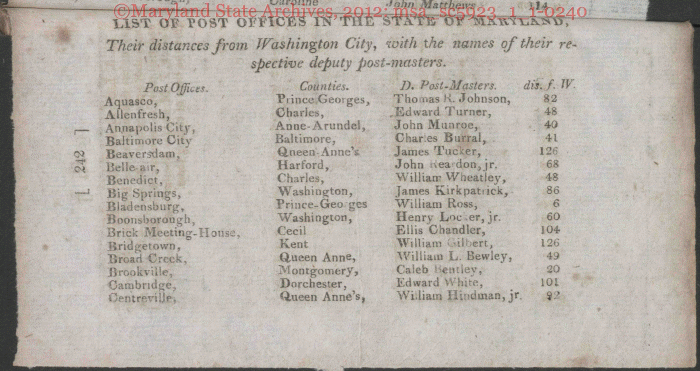 Caroline John Matthews 114
©Maryland State Archives, 2012, msa_sc5923_1_1-0240
LIST OF POST OFFICES IN THE STATE OF MARYLAND,
Their distances from Washington City, with the names of their re-
spective deputy post-masters.
Post Offices. Counties. D. Post-Masters. dis. f. W.
Aquasco, Prince Georges, Thomas R. Johnson, 82
Allenfresh, Charles, Edward Turner, 48
Annapolis City, Anne-Arundel, John Munroe, 40
Baltimore City Baltimore, Charles Burral, 41
Beaversdam, Queen-Anne's James Tucker, 126
Belle-air, Harford, John Reardon, jr. 68
Benedict, Charles, William Wheatley, 48
Big Springs, Washington, James Kirkpatrick, 86
Bladensburg, Prince-Georges William Ross, 6
Boonsborough, Washington, Henry Locher, jr. 60
Brick Meeting-House, Cecil Ellis Chandler, 104
Bridgetown, Kent William Gilbert, 126
Broad Creek, Queen Anne, William L. Bewley, 49
Brookville, Montgomery, Caleb Bentley, 20
Cambridge, Dorchester, Edward White, 101
Centreville, Queen Anne's, William Hindman, jr. 92
[ 242 ]